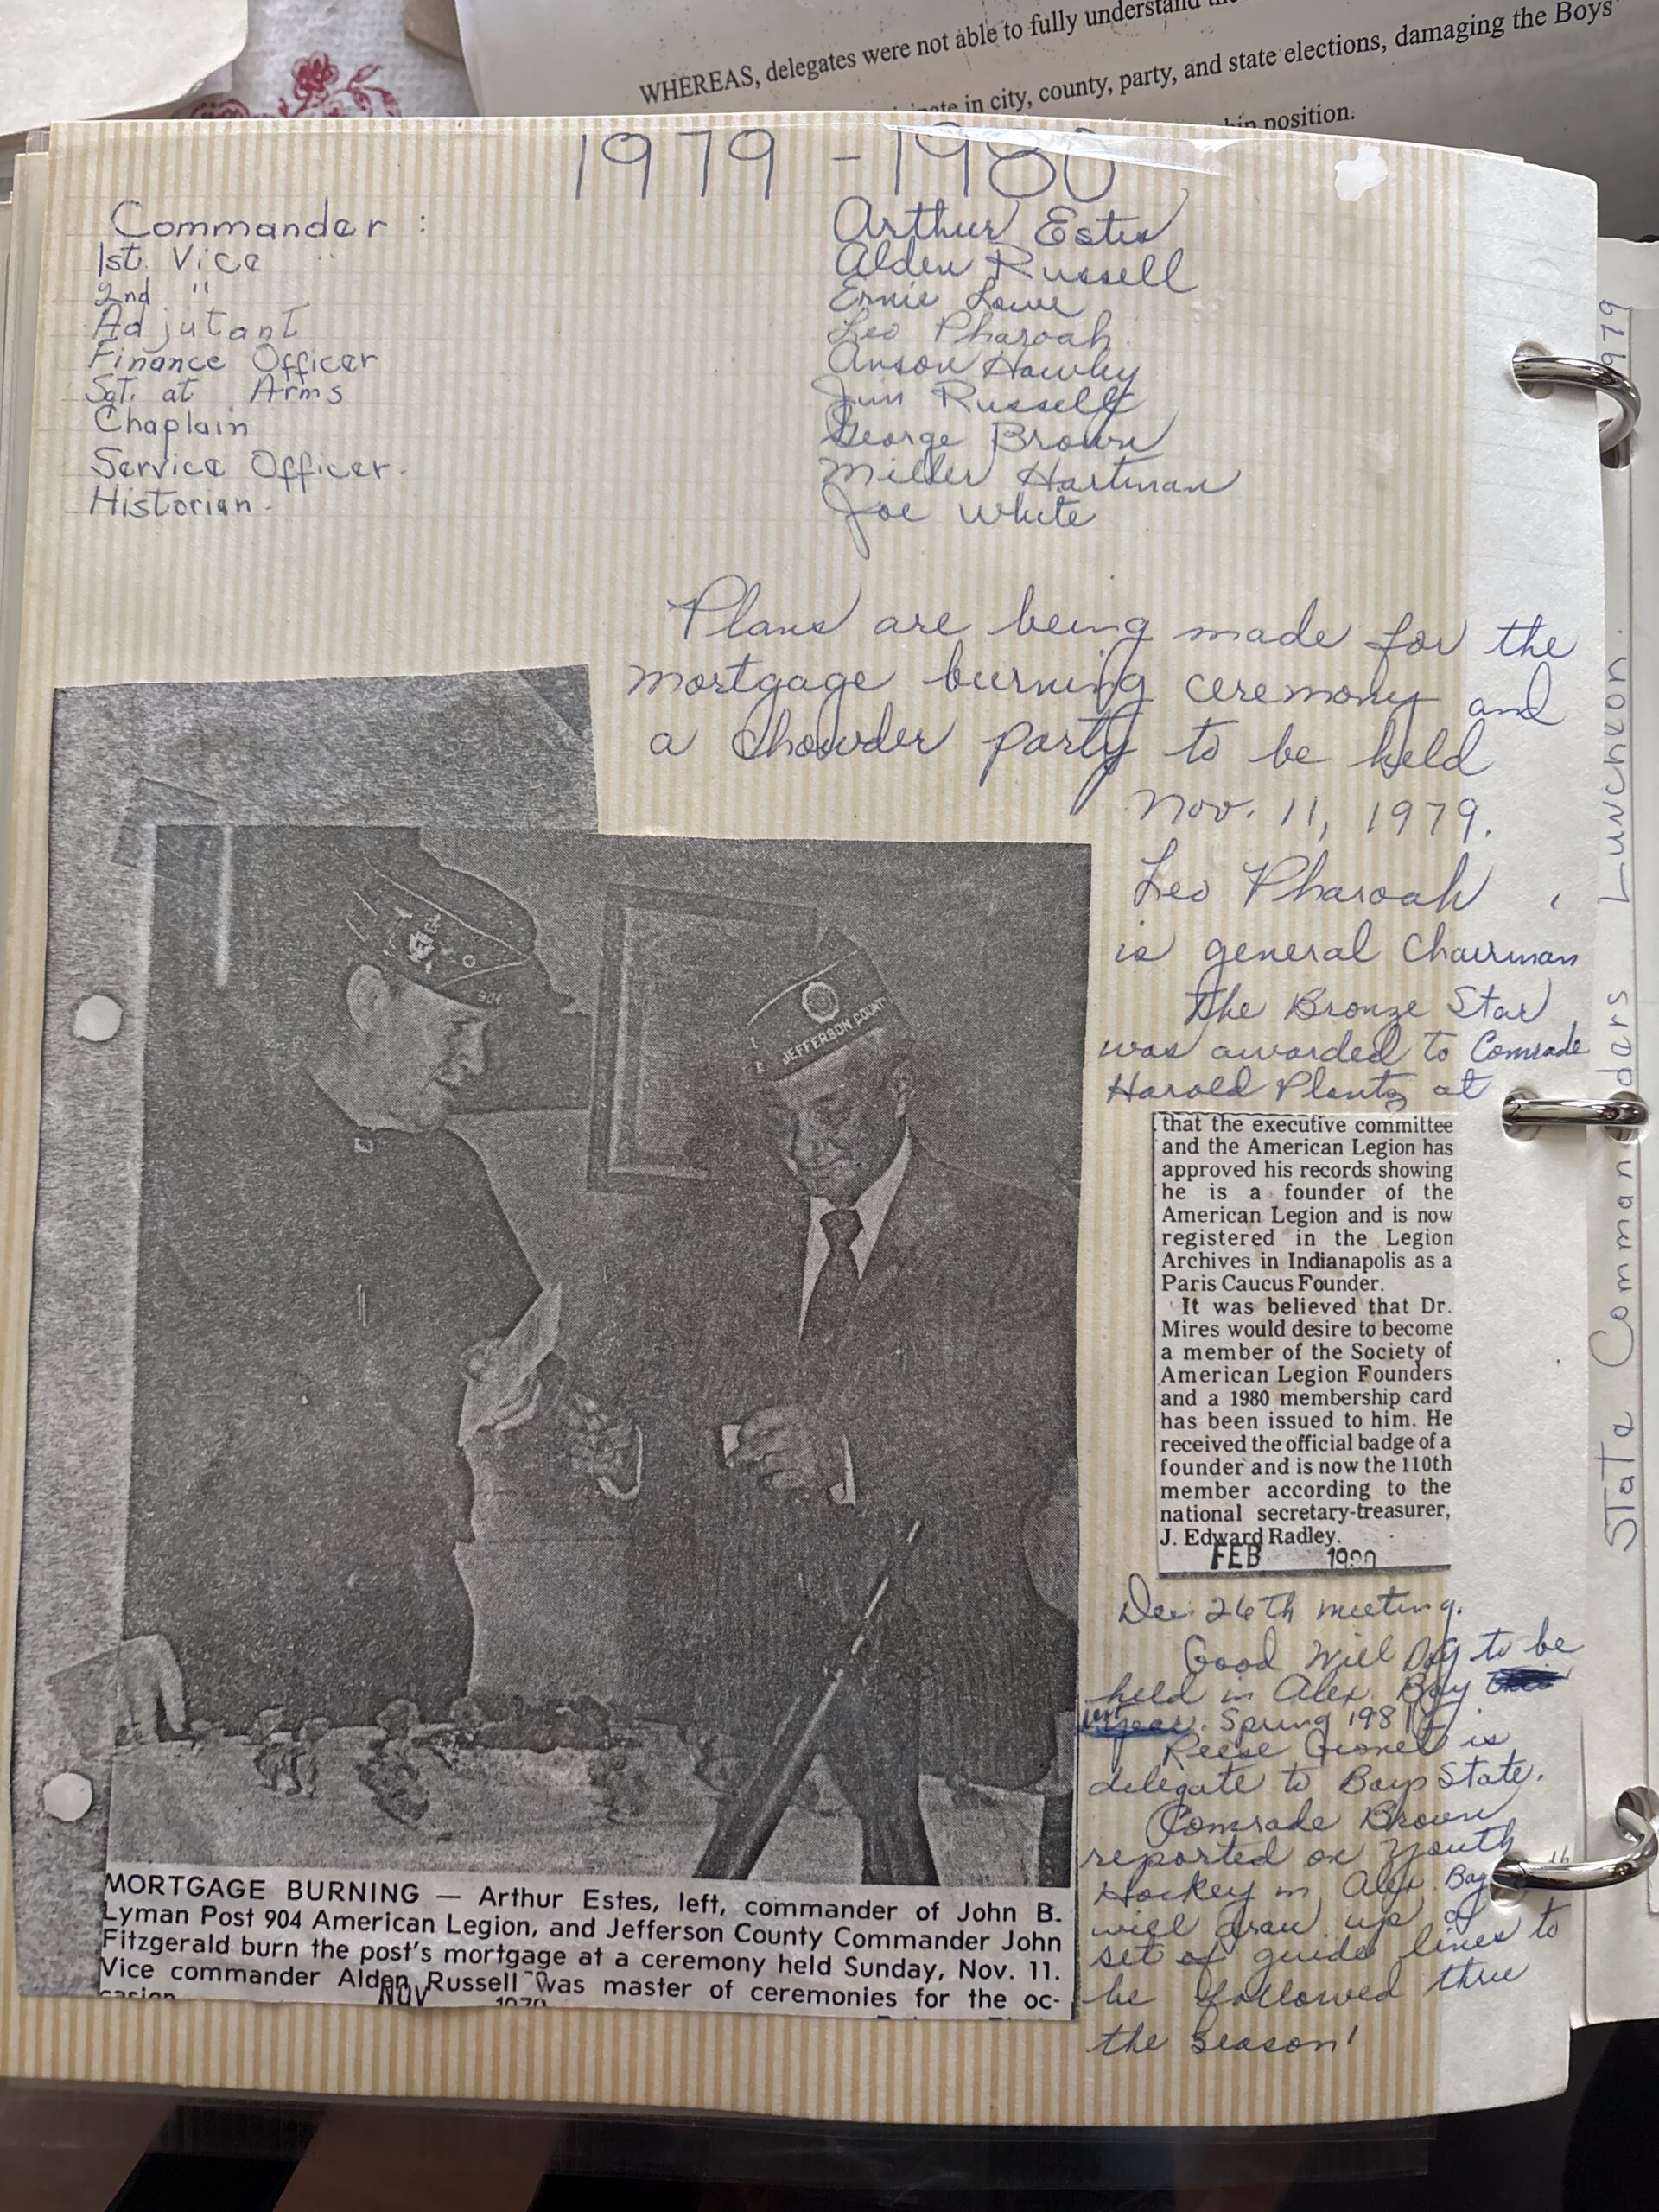 WHEREAS, delegates were not able to fully understand
in city, county, party, and state elections, damaging the Boys'
position.
1979 - 1980
Commander : Arthur Estes
1st. Vice Alden Russell
2nd " Ernie Lowe
Adjutant Leo Pharoah
Finance Officer Anson Hawley
Sgt. at Arms Jim Russell
Chaplain George Brown
Service Officer. Miller Hartman
Historian. Joe White
Plans are being made for the
mortgage burning ceremony and
a chowder party to be held
Nov. 11, 1979.
Leo Pharoah
is general Chairman
The Bronze Star
was awarded to Comrade
Harold Plantz at
that the executive committee
and the American Legion has
approved his records showing
he is a founder of the
American Legion and is now
registered in the Legion
Archives in Indianapolis as a
Paris Caucus Founder.
It was believed that Dr.
Mires would desire to become
a member of the Society of
American Legion Founders
and a 1980 membership card
has been issued to him. He
received the official badge of a
founder and is now the 110th
member according to the
national secretary-treasurer,
J. Edward Radley.
FEB 1980
Dec. 26th meeting.
Good Will Day to be
held in Alex. Bay
year. Spring 1981
Reese is
delegate to Boys State.
Comrade Brown
reported on Youth
Hockey in Alex. Bay
will draw up a
set of guide lines to
be followed thru
the season!
904
JEFFERSON COUNTY
MORTGAGE BURNING — Arthur Estes, left, commander of John B.
Lyman Post 904 American Legion, and Jefferson County Commander John
Fitzgerald burn the post's mortgage at a ceremony held Sunday, Nov. 11.
Vice commander Alden Russell was master of ceremonies for the oc-
casion
NOV 1979
State Commanders Luncheon. 1979